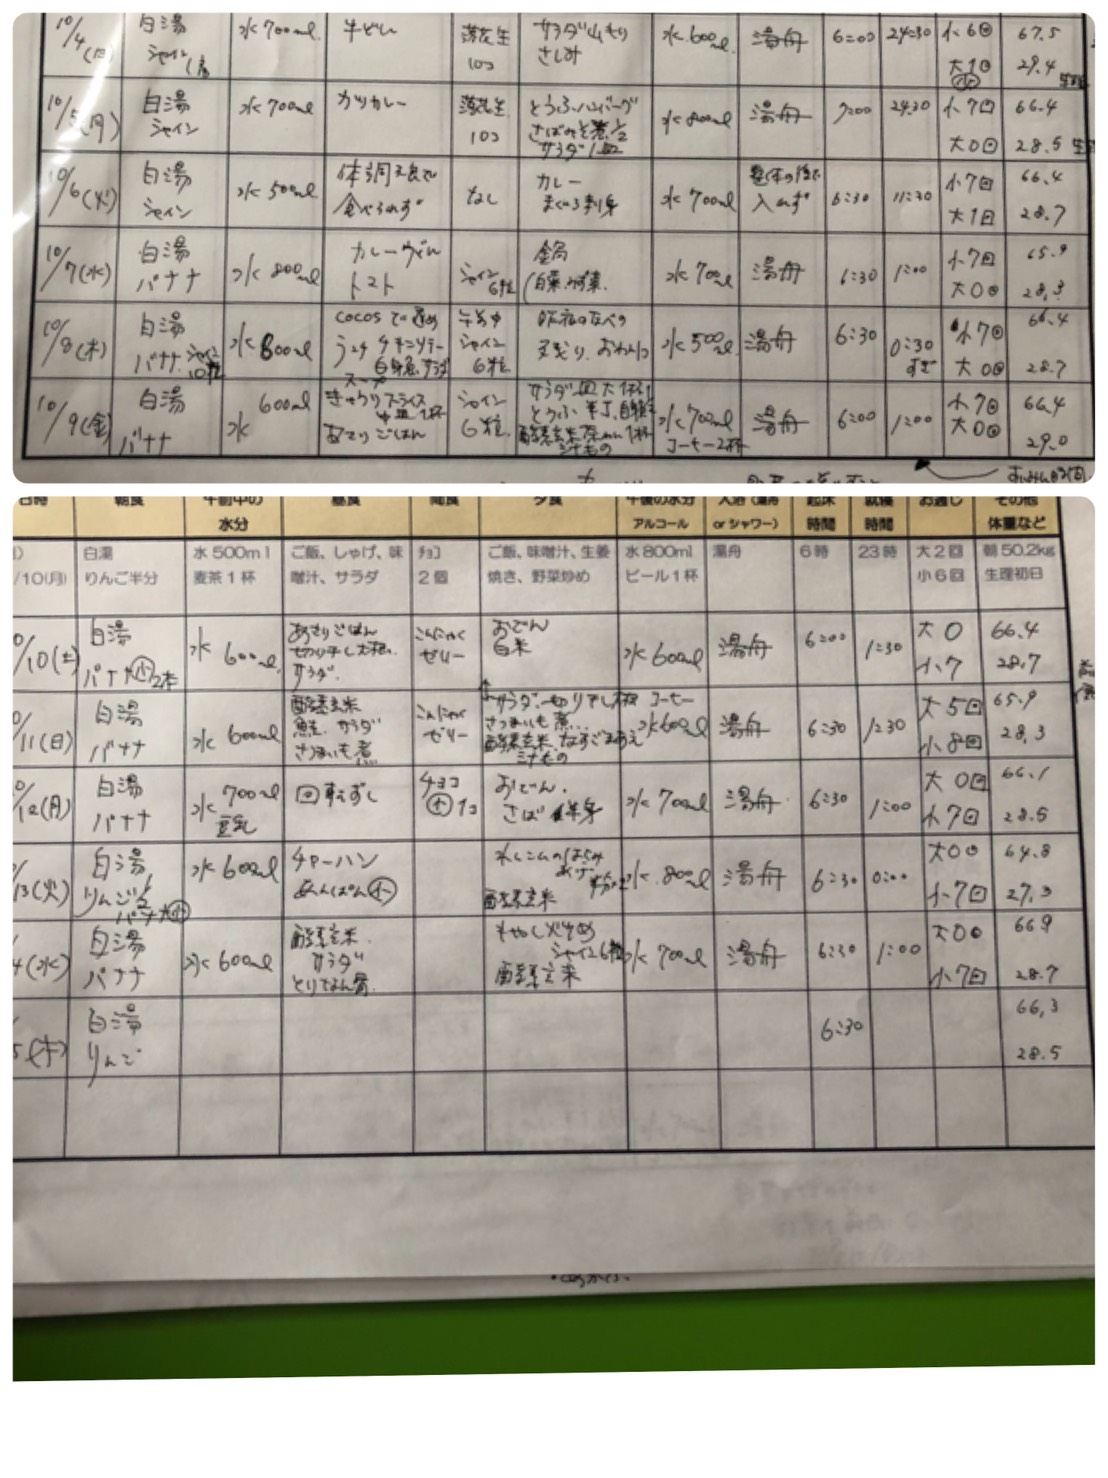 10/4(日) 白湯 水700ml 牛どん 落花生 サラダ山もり 水600ml 湯舟 6:00 24:30 小6回 67.5
シャイン 10コ さしみ 大1回 29.4
10/5(月) 白湯 水700ml カツカレー 落花生 とうふハンバーグ 水800ml 湯舟 7:00 24:30 小7回 66.4
シャイン 10コ さばみそ煮 1/2 大0回 28.5
サラダ1皿
10/6(火) 白湯 水500ml 体調不良で なし カレー 水700ml 整体の後で 6:30 11:30 小7回 66.4
シャイン 食べられず まぐろ刺身 入れず 大1回 28.7
10/7(水) 白湯 水800ml カレーうどん シャイン 鍋 水700ml 湯舟 6:30 1:00 小7回 65.9
バナナ トマト 6粒 (白菜 大0回 28.3
10/8(木) 白湯 水800ml cocosで遅め 午前中 昨夜のなべの 水500ml 湯舟 6:30 0:30 小7回 66.4
バナナ シャイン10粒 シャイン 残り すぎ 大0回 28.7
スープ 6粒
10/9(金) 白湯 水600ml きゅうりスライス シャイン とうふ 水700ml 湯舟 6:00 1:00 小7回 66.4
バナナ あさりごはん 6粒 酵素玄米 コーヒー2杯 大0回 29.0
日時 朝食 午前中の 昼食 間食 夕食 午後の水分 入浴(湯舟 起床 就寝 お通じ その他
水分 アルコール orシャワー) 時間 時間 体重など
白湯 水500ml ご飯、しゃけ、味 チョコ ご飯、味噌汁、生姜 水800ml 湯舟 6時 23時 大2回 朝50.2kg
/10(月) りんご半分 麦茶1杯 噌汁、サラダ 2個 焼き、野菜炒め ビール1杯 小6回 生理初日
/10(土) 白湯 水600ml あさりごはん こんにゃく おでん 水600ml 湯舟 6:00 1:30 大0 66.4
バナナ小2本 切り干し大根 ゼリー 白米 小7 28.7
サラダ
/11(日) 白湯 水600ml 酵素玄米 こんにゃく サラダ 切り干し大根 コーヒー 湯舟 6:30 1:30 大5回 65.9
バナナ 鮭 サラダ ゼリー さつまいも煮 水600ml 小8回 28.3
さつまいも煮 酵素玄米
/12(月) 白湯 水700ml 回転ずし チョコ おでん 水700ml 湯舟 6:30 1:00 大0回 66.1
バナナ 豆乳 大1コ さば 半身 小7回 28.5
/13(火) 白湯 水600ml チャーハン れんこんのはさみ 水800ml 湯舟 6:30 0:00 大0回 64.8
りんご1/2 あんぱん小 あげ 小7回 27.3
バナナ 酵素玄米
4(水) 白湯 水600ml 酵素玄米 もやし炒め 水700ml 湯舟 6:30 1:00 大0回 66.9
バナナ サラダ シャイン6粒 小7回 28.7
酵素玄米
5(木) 白湯 6:30 66.3
りんご 28.5